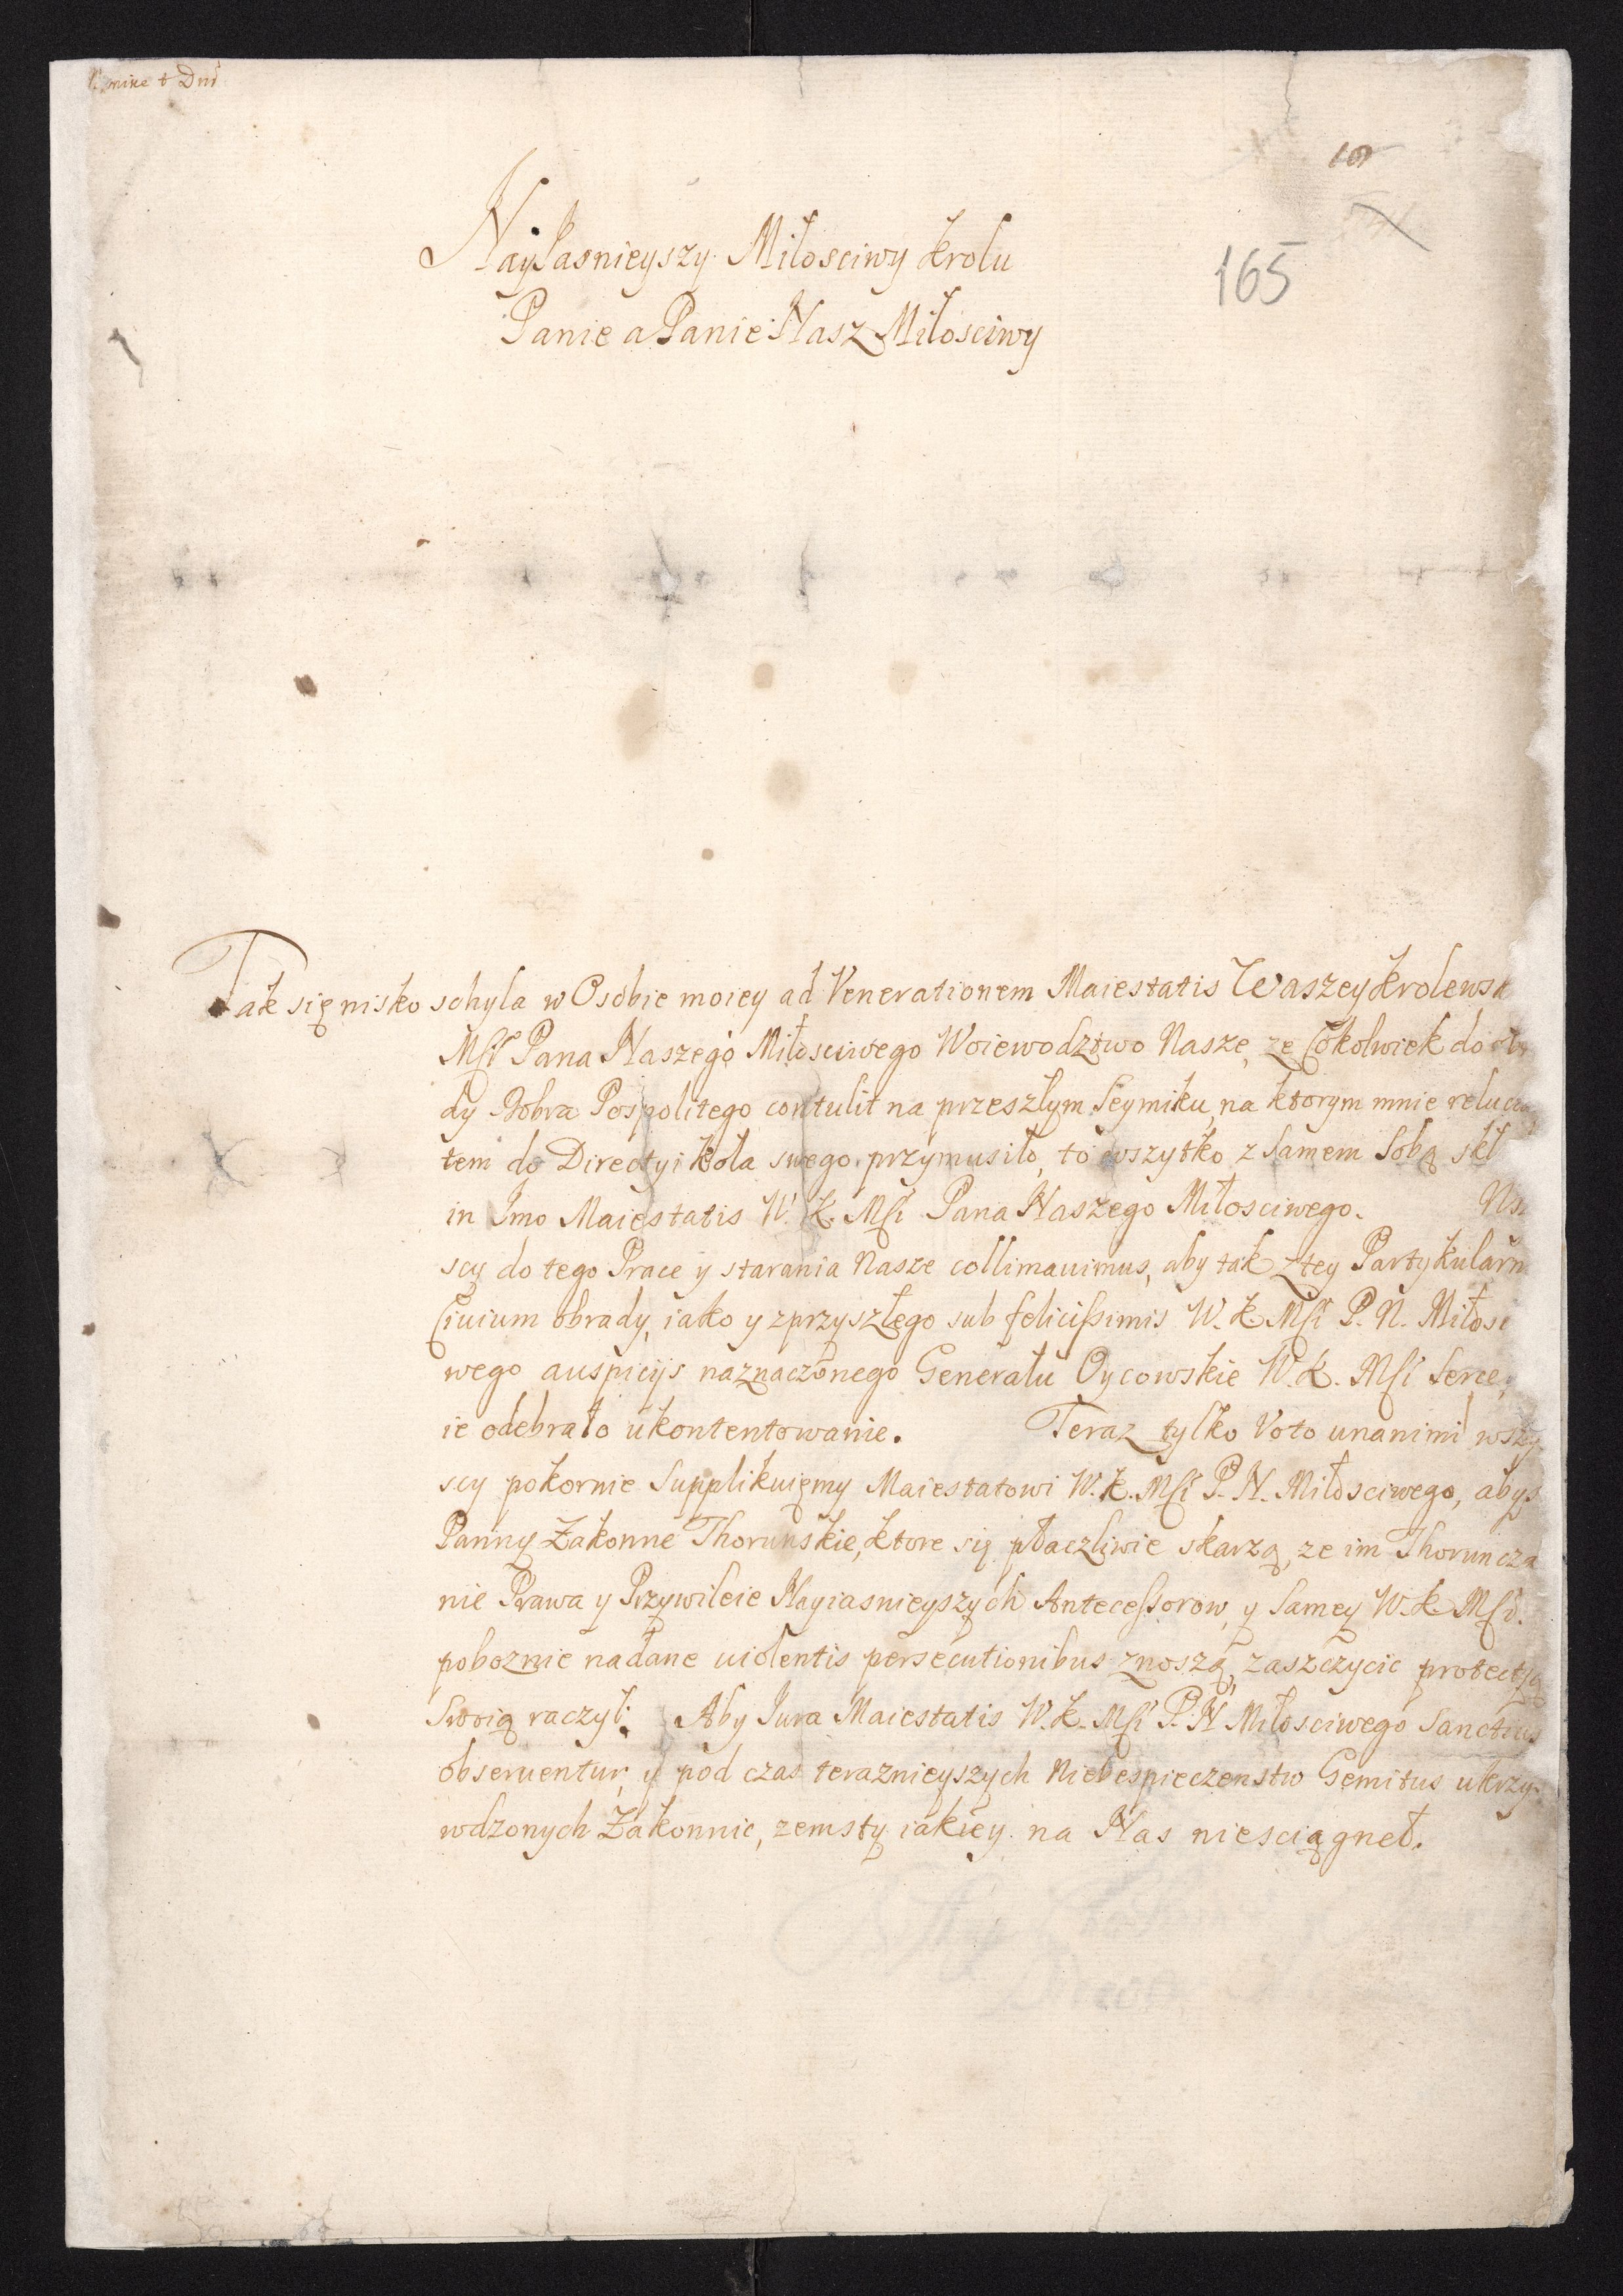 NayJasnieyszy Miłosciwy Krolu
165
Panie a Panie Nasz Miłosciwy
Tak się nisko schyla w Osobie moiey ad Venerationem Maiestatis Waszey Krolewsk
Mśi Pana Naszego Miłosciwego Woiewodztwo Nasze, ze Cokolwiek do
dy Dobra Pospolitego contulit na przeszłym Seymiku, na ktorym mnie reluctan
tem do Directyi Koła swego przymusiło, to wszytko z Samem Sobą skł
in Imo Maiestatis W. K. Mśi Pana Naszego Miłosciwego.
scy do tego Prace y starania Nasze collimauimus, aby tak z tey Partykularn
Ciuium obrady, iako y z przyszłego sub felicissimis W. K. Mśi P. N. Miłosc
wego auspicijs naznaczonego Generału Oycowskie W. K. Mśi Serce,
ie odebrało ukontentowanie. Teraz tylko Voto unanimi wszy
scy pokornie Supplikuięmy Maiestatowi W. K. Mśi P. N. Miłosciwego, abyś
Panny Zakonne Thorunskie, ktore się płaczliwie skarzą, ze im Thoruncza
nie Prawa y Przywileie Nayiasnieyszych Antecessorow, y Samey W. K. Mśi.
poboznie nadane uiolentis persecutionibus znoszą, zaszczycic protectyą
Swoią raczył. Aby Iura Maiestatis W. K. Mśi P. N Miłosciwego Sanctius
obseruentur, y pod czas teraznieyszych Niebespieczenstw Gemitus ukrzy-
wdzonych Zakonnic, zemsty iakiey na Nas niesciągneł.